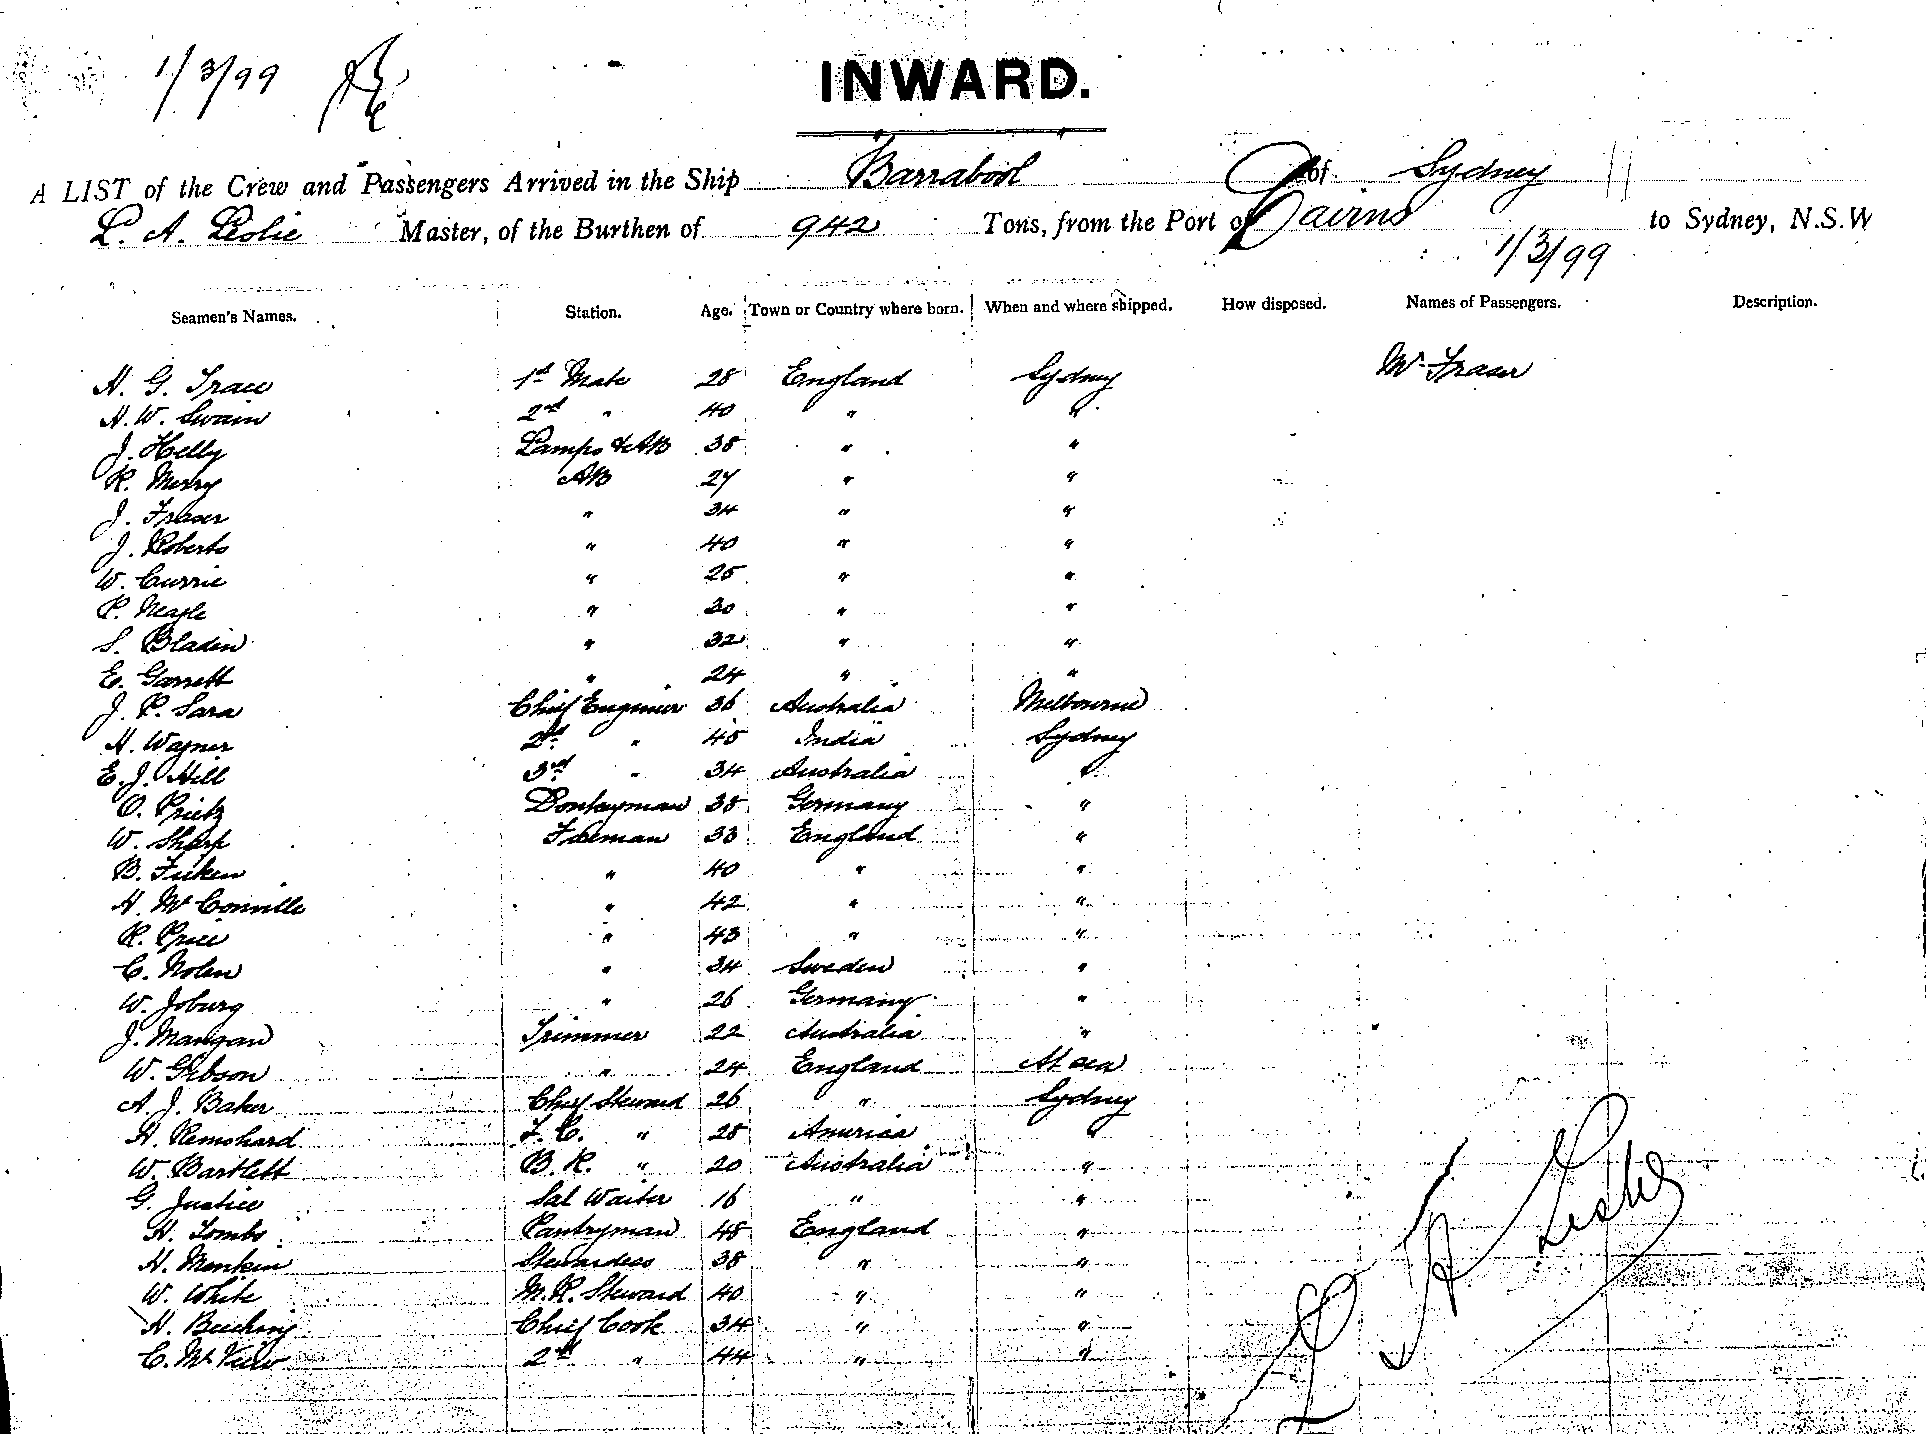 1/3/99
INWARD.
A LIST of the Crew and Passengers Arrived in the Ship Barrabool of Sydney
L. A. Leslie Master, of the Burthen of 942 Tons, from the Port of Cairns to Sydney, N.S.W
1/3/99
Seamen's Names. Station. Age. Town or Country where born. When and where shipped. How disposed. Names of Passengers. Description.
H. G. 1st Mate 28 England Sydney Mr Fraser
H. W. Swain 2nd " 40 " "
J. Helly Lamps & AB 38 " "
R. Merry AB 27 " "
J. Fraser " 34 " "
J. Roberts " 40 " "
W. Currie " 25 " "
P. Neagle " 30 " "
S. Bladin " 32 " "
E. Garrett " 24 " "
J. P. Sara Chief Engineer 36 Australia Melbourne
H. Wagner 2nd " 45 India Sydney
E. J. Hill 3rd " 34 Australia "
O. Prietz Donkeyman 38 Germany "
W. Sharp Fireman 33 England "
B. " 40 " "
H. McConville " 42 " "
R. Price " 43 " "
C. Nolen " 34 Sweden "
W. Joburg " 26 Germany "
J. Mangan Trimmer 22 Australia "
W. Gibson " 24 England At sea
A. J. Baker Chief Steward 26 " Sydney
H. F. C. " 28 America "
W. Bartlett B. R. " 20 Australia "
G. Justice Sal Waiter 16 " "
H. Tombs Pantryman 48 England "
H. Menkin Stewardess 38 " "
W. White M. R. Steward 40 " "
H. Beeching Chief Cook 34 " "
C. 2nd " 44 " "
L A Leslie